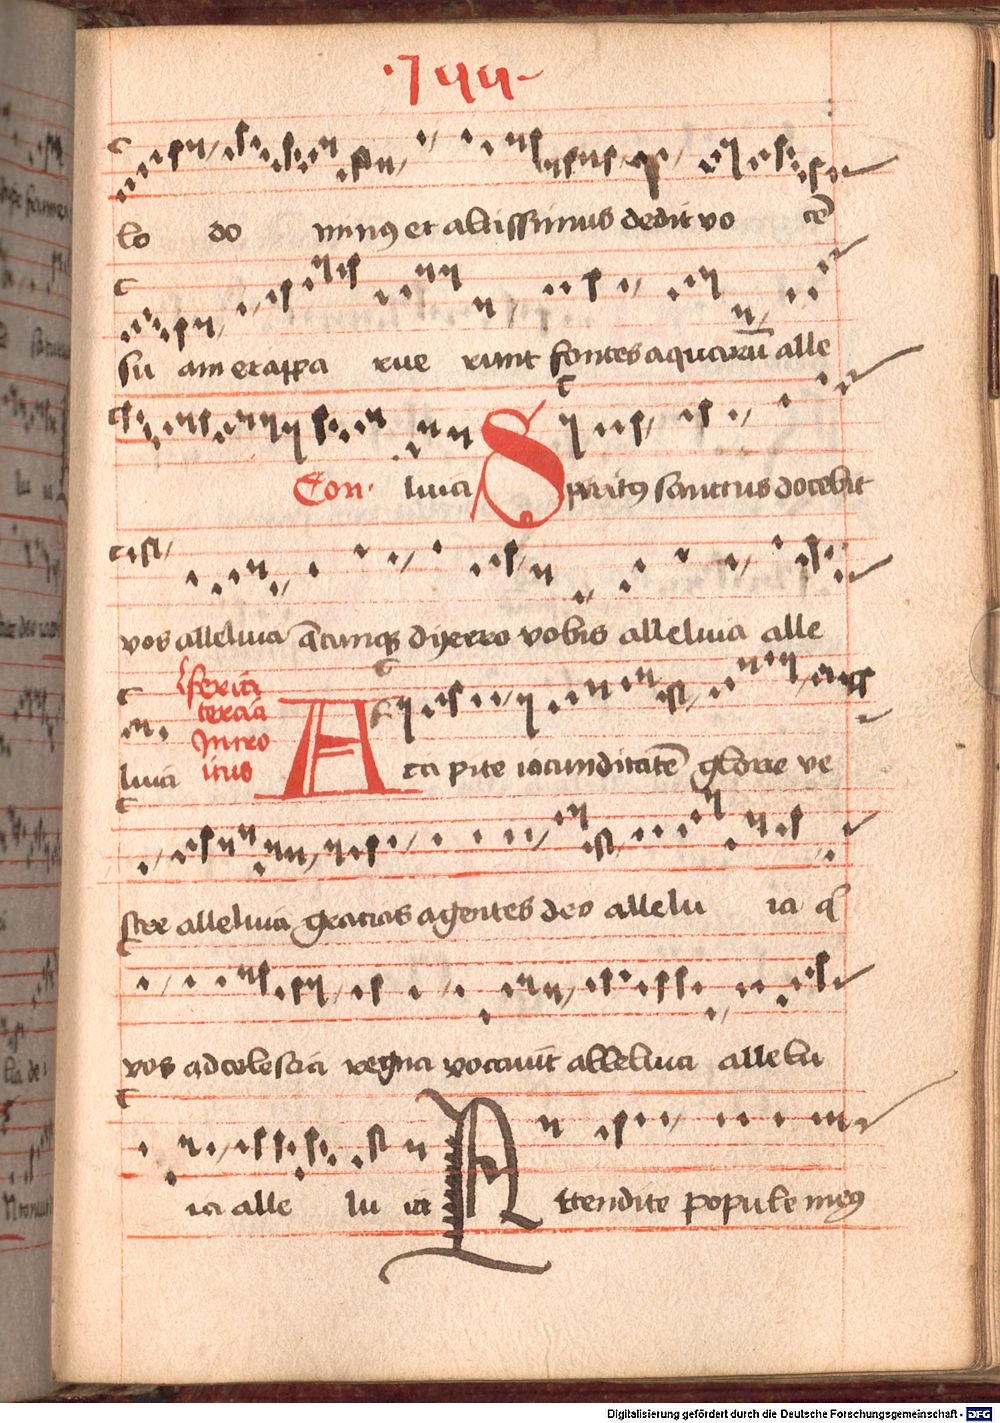 ·144·
lo do minus et altissimus dedit vo cē
su am et appa rue runt fontes aquarū alle
Con· luia Spiritus sanctus docebit
vos alleluia q̄cunque dixero vobis alleluia alle
feria
tercia
Intro
itus
luia Acci pite iocunditatē glorie ve
stre alleluia gracias agentes deo allelu ia q
vos ad celestia regna vocavit alleluia allelu
ia alle lu ia Attendite popule meus
Digitalisierung gefördert durch die Deutsche Forschungsgemeinschaft - DFG